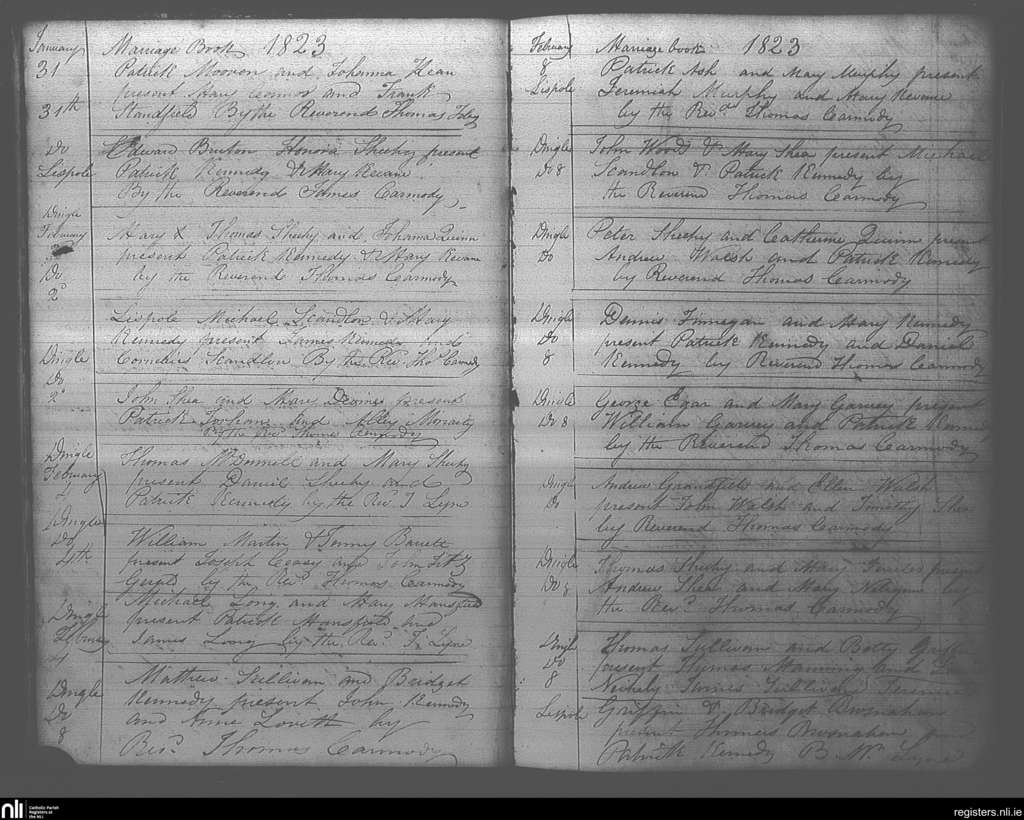 January
Marriage Book 1823
31
Patrick and Johanna Kean
present Mary Connor and Frank
31th
Standfield By the Reverend Thomas Foley
Do
Edward Bruton Honora Sheehy present
Lispole
Patrick Kennedy & Mary Kevane
By the Reverend James Carmody
Dingle
February
Thomas Sheehy and Johanna Quinn
present Patrick Kennedy & Mary Kevane
Do
by the Reverend Thomas Carmody
2
Lispole Michael Scandlon & Mary
Kennedy present James Kennedy and
Dingle
Cornelius Scandlon By the Rev. Thos Carmody
Do
2
John Shea and Mary present
Patrick and Alley Moriarty
By the Rev Thomas Carmody
Dingle
Thomas McDonnell and Mary Sheehy
February
present Daniel Sheehy and
Patrick Kennedy by the Rev. T Lyne
Dingle
Do
William Martin & Jenny Barrett
4th
present Joseph and John Fitz
Gerald by the Rev. Thomas Carmody
Michael Long and Mary Mansfield
Dingle
present Patrick Mansfield and
February
James Long by the Rev. T. Lyne
4
Matthew Sullivan and Bridget
Dingle
Kennedy present John Kennedy
Do
and Anne Lovett by
8
Rev. Thomas Carmody
February
Marriage book 1823
8
Patrick Ash and Mary Murphy present
Lispole
Jeremiah Murphy and Mary Kevane
by the Rev. Thomas Carmody
Dingle
John Wood & Mary Shea present Michael
Do 8
Scandlon & Patrick Kennedy by
the Reverend Thomas Carmody
Dingle
Peter Sheehy and Catherine Quinn present
Do
Andrew Walsh and Patrick Kennedy
by Reverend Thomas Carmody
Dingle
Dennis Finnegan and Mary Kennedy
Do
present Patrick Kennedy and Daniel
8
Kennedy by Reverend Thomas Carmody
Dingle
George Egar and Mary Garvey present
Do 8
William Garvey and Patrick
by the Reverend Thomas Carmody
Dingle
Andrew Grandfield and Ellen Walsh
Do
present John Walsh and Timothy Shea
by Reverend Thomas Carmody
Dingle
Thomas Sheehy and Mary present
Do 8
Andrew Shea and Mary by
the Rev. Thomas Carmody
Dingle
Thomas Sullivan and Betty
Do
present Thomas Manning and
8
James Sullivan
Lispole
Griffin & Bridget Brosnahan
present Thomas Brosnahan
Patrick Kennedy B
nli
Catholic Parish
Registers at
the NLI
registers.nli.ie